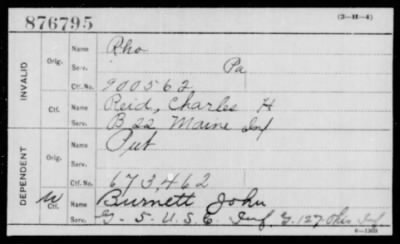 876795
(3-H-4)
INVALID
Orig.
Name Rho
Serv. Pa
Ctf. No. 900562
Ctf.
Name Reid, Charles H
Serv. B 22 Maine Inf
DEPENDENT
Orig.
Name Put
Serv.
Ctf. No. 673,462
W Ctf.
Name Burnett John
Serv. G. 5. U.S.C. Inf. G. 127 Ohio Inf
6-1303